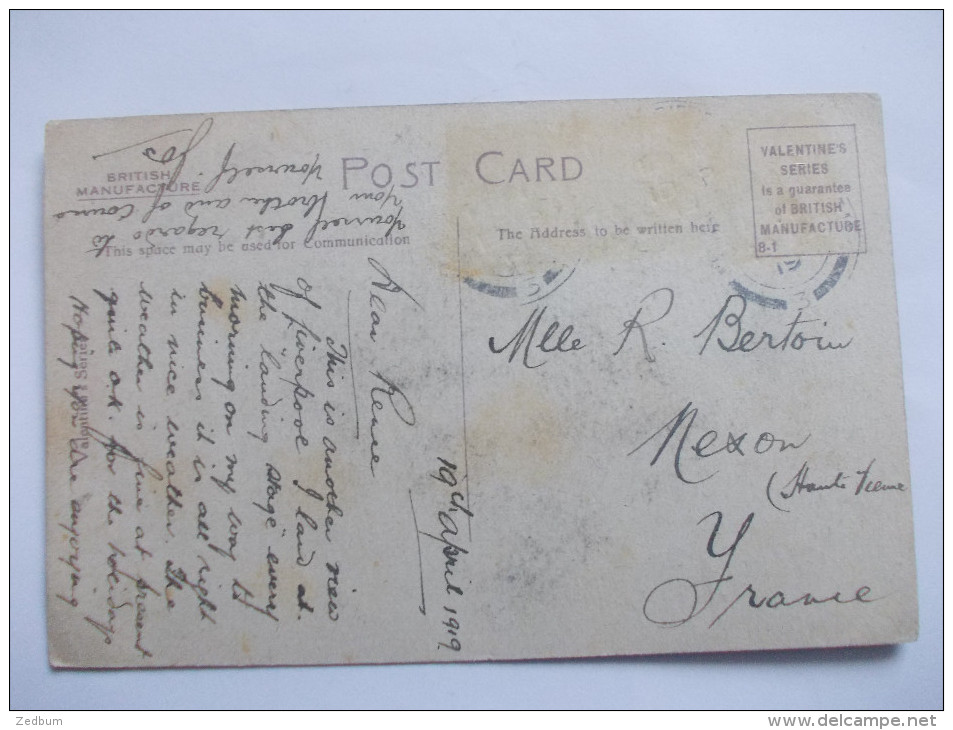 BRITISH
MANUFACTURE
POST CARD
This space may be used for Communication
The Address to be written here
VALENTINE'S
SERIES
is a guarantee
of BRITISH
MANUFACTURE
8-1
Mlle R. Bertoin
Nexon
(Haute Vienne
France
19th april 1919
Dear Renee
This is another view
of Liverpool I land at
the "landing stage" every
morning on my way to
business it is all right
in nice weather. The
weather is fine at present
quite o.k. for the holidays
Hoping you are enjoying
yourself best regards to
your brother and of course
yourself
Jos
Valentine's Series
Zedbum
delcampe.net